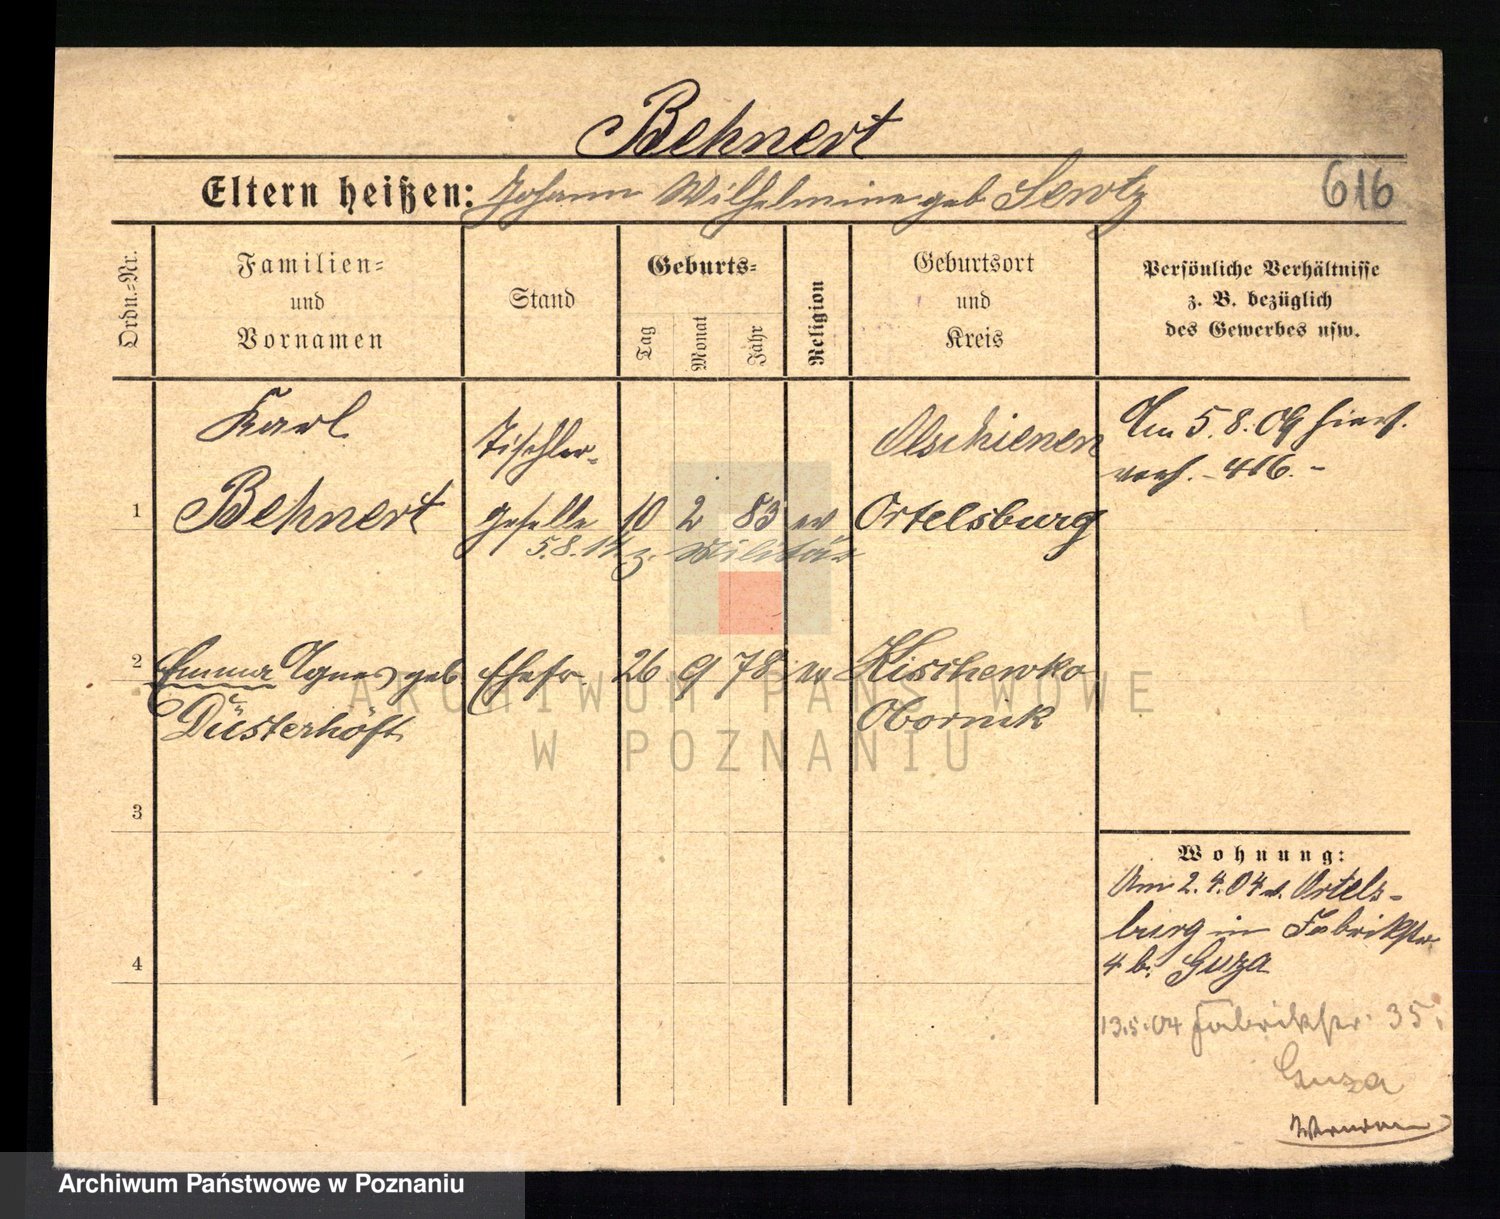 Behnert
Eltern heißen: Johann Wilhelmine geb
616
Ordn.=Nr.
Familien=
und
Vornamen
Stand
Geburts=
Tag
Monat
Jahr
Religion
Geburtsort
und
Kreis
Persönliche Verhältnisse
z. B. bezüglich
des Gewerbes usw.
1
Karl
Behnert
Tischler-
geselle
10 2 83 ev
Olschienen
Ortelsburg
Am 5.8.09 hier
verh. - 416. -
5.8.14 z. Militär
2
Emma Agnes geb
Düsterhöft
Ehefr. 26 9 78 ev
Kischewko
Obornik
3
4
Wohnung:
Am 2.4.04 v. Ortels-
burg in Fabrikstr
4 b. Guza
13.5.04 Fabrikstr. 35.
Guza
ARCHIWUM PAŃSTWOWE
W POZNANIU
Archiwum Państwowe w Poznaniu